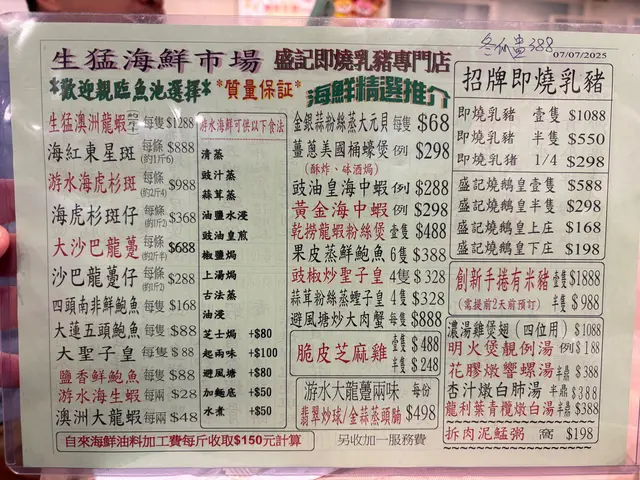 生猛海鮮市場 盛記即燒乳豬專門店
07/07/2025
*歡迎親臨魚池選擇* *質量保証* 海鮮精選推介
生猛澳洲龍蝦 每隻 $1288
海紅東星斑 每條 $888
(約1斤6)
游水海虎杉斑 每條 $988
(約2斤4)
海虎杉斑仔 每條 $368
大沙巴龍躉 每條 $688
沙巴龍躉仔 每條 $288
四頭南非鮮鮑魚 每隻 $168
大蓮五頭鮑魚 每隻 $88
大聖子皇 每隻 $88
鹽香鮮鮑魚 每隻 $88
游水海生蝦 每兩 $28
澳洲大龍蝦 每兩 $48
游水海鮮可供以下食法
清蒸
豉汁蒸
蒜茸蒸
油鹽水浸
豉油皇煎
椒鹽焗
上湯焗
古法蒸
油浸
芝士焗 +$80
起兩味 +$100
避風塘 +$80
加麵底 +$50
水煮 +$50
金銀蒜粉絲蒸大元貝 每隻 $68
薑蔥美國桶蠔煲 例 $298
(酥炸、砵酒焗)
豉油皇海中蝦 例 $288
黃金海中蝦 例 $298
乾撈龍蝦粉絲煲 壹隻 $488
果皮蒸鮮鮑魚 6隻 $388
豉椒炒聖子皇 4隻 $328
蒜茸粉絲蒸蟶子皇 4隻 $328
避風塘炒大肉蟹 每隻 $888
脆皮芝麻雞 壹隻 $488
半隻 $248
游水大龍躉兩味 每份
翡翠炒球/金蒜蒸頭腩 $498
招牌即燒乳豬
即燒乳豬 壹隻 $1088
即燒乳豬 半隻 $550
即燒乳豬 1/4 $298
盛記燒鵝皇壹隻 $588
盛記燒鵝皇半隻 $298
盛記燒鵝皇上庄 $168
盛記燒鵝皇下庄 $198
創新手捲有米豬 壹隻 $1888
(需提前2天前預訂) 半隻 $988
濃湯雞煲翅（四位用） $1088
明火煲靚例湯 例 $188
花膠燉響螺湯 半鼎 $388
杏汁燉白肺湯 半鼎 $388
龍利葉青欖燉白湯 半鼎 $388
拆肉泥鯭粥 窩 $198
自來海鮮油料加工費每斤收取$150元計算 另收加一服務費